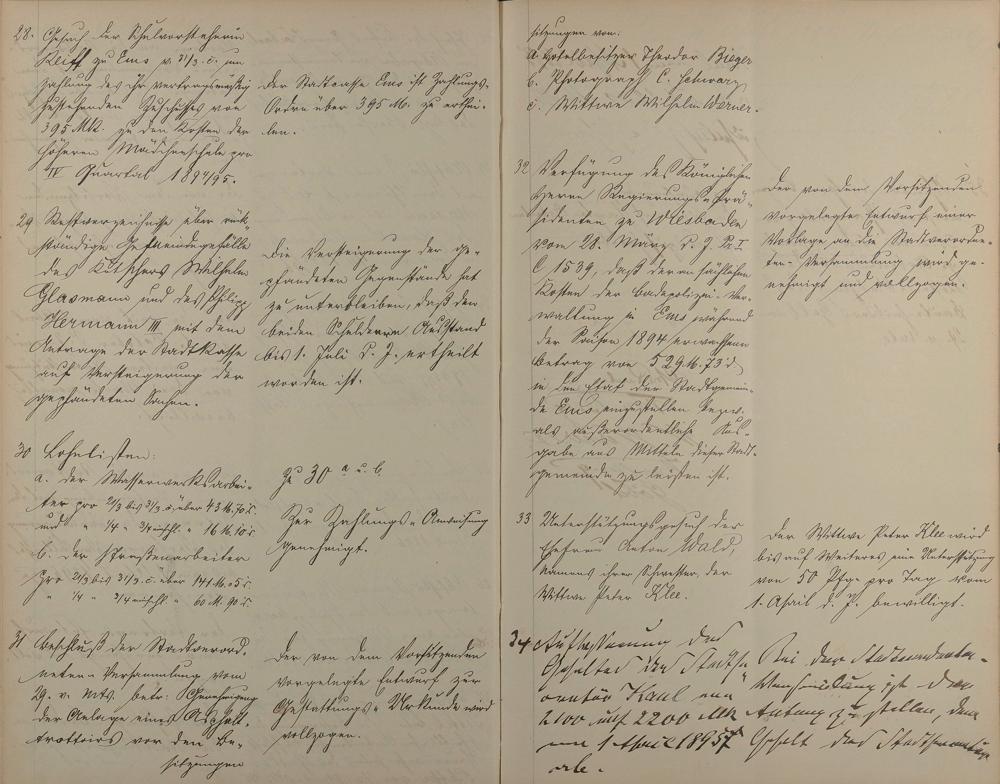 28. Gesuch der Schulvorsteherin
Reiff zu Ems v. 31/3. c. um
Zahlung des ihr vertragsmäßig
zustehenden Zuschusses von
395 Mk. zu den Kosten der
höheren Mädchenschule pro
IV Quartal 1894/95.
Der Stadtcasse Ems ist Zahlungs-
Ordre über 395 M. zu erthei-
len.
29 Restverzeichnisse über rück-
ständige Gemeindegefälle
des Kutschers Wilhelm
Glasmann und des Philipp
Hermann III. mit dem
Antrage der Stadtkasse
auf Versteigerung der
gepfändeten Sachen.
Die Versteigerung der ge-
pfändeten Gegenstände hat
zu unterbleiben, daß den
beiden Schuldnern Ausstand
bis 1. Juli d. J. ertheilt
worden ist.
30 Lohnlisten:
a. der Wasserwerksarbei-
ter pro 21/3 bis 31/3. c. über 43 M. 70 d.
und " 1/4 " 3/4 einschl. " 16 M. 10 d.
b. der Straßenarbeiter
pro 21/3 bis 31/3. c. über 141 M. 05 d.
" 1/4 " 3/4 einschl. " 60 M. 90 d.
Zu 30 a u. b
Zur Zahlungs-Anweisung
genehmigt.
31 Beschluß der Stadtverord-
neten-Versammlung vom
29. v. Mts. betr. Genehmigung
der Anlage eines Asphalt-
trottoirs vor den Be-
sitzungen
Der von dem Vorsitzenden
vorgelegte Entwurf zur
Gestattungs-Urkunde wird
vollzogen.
sitzungen von:
a. Hotelbesitzer Theodor Bieger
b. Photograph C. Schwarz
c. Wittwe Wilhelm Werner.
32 Verfügung des Königlichen
Herrn Regierungs-Prä-
sidenten zu Wiesbaden
vom 28. März d. J. Pr. I.
C 1539, daß der an sächlichen
Kosten der Badepolizei-Ver-
waltung in Ems während
der Saison 1894 erwachsene
Betrag von 529 M. 73 d.
in den Etat der Stadtgemein-
de Ems einzustellen bezw.
als außerordentliche Aus-
gabe aus Mitteln dieser Stadt-
gemeinde zu leisten ist.
Der von dem Vorsitzenden
vorgelegte Entwurf einer
Vorlage an die Stadtverordne-
ten-Versammlung wird ge-
nehmigt und vollzogen.
33 Unterstützungsgesuch der
Ehefrau Anton Wald,
Namens ihrer Schwester, der
Wittwe Peter Klee.
Der Wittwe Peter Klee wird
bis auf Weiteres eine Unterstützung
von 50 Pfge pro Tag vom
1. April d. J. bewilligt.
34 Aufbesserung des
Gehaltes des Stadtse-
cretär Kaul von
2100 auf 2200 Mk
vom 1 April 1895
ab.
Bei der Stadtverordneten-
Versammlung ist der
Antrag zu stellen, dem
Gehalt des Stadtsecretär